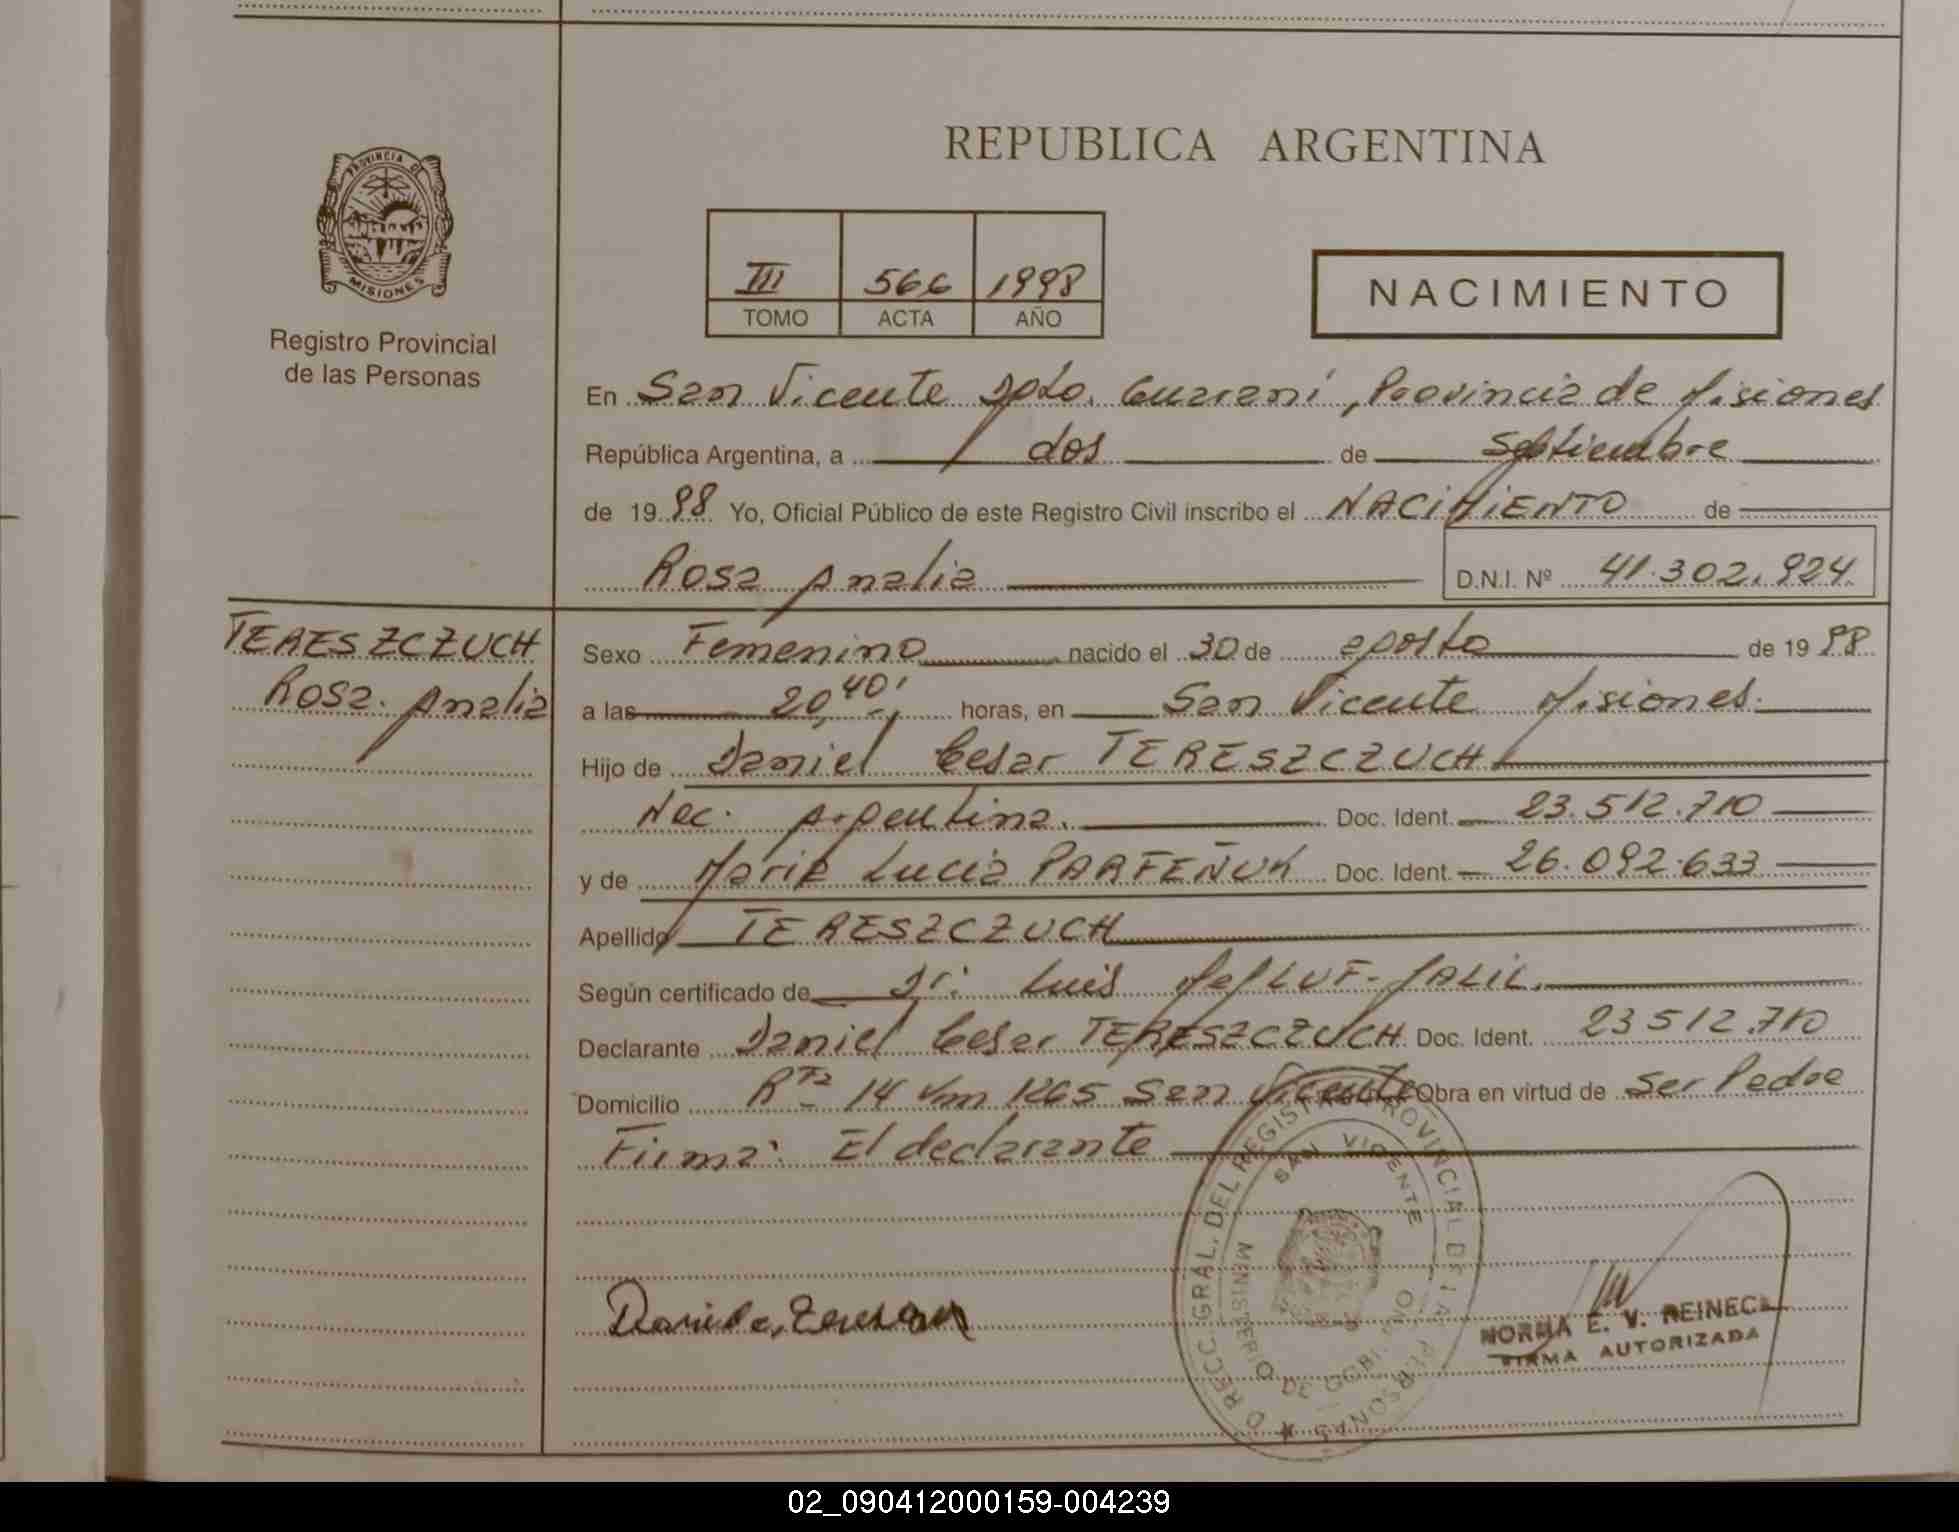 REPUBLICA ARGENTINA
PROVINCIA DE MISIONES
Registro Provincial
de las Personas
III 566 1998
TOMO ACTA AÑO
NACIMIENTO
En San Vicente Dpto. Guarani, Provincia de Misiones
República Argentina, a dos de Septiembre
de 1998 Yo, Oficial Público de este Registro Civil inscribo el NACIMIENTO de
Rosa Analia D.N.I. Nº 41.302.924
TERESZCZUCH
Rosa. Analia
Sexo Femenino nacido el 30 de agosto de 1998
a las 20,40' horas, en San Vicente Misiones.
Hijo de Daniel Cesar TERESZCZUCH
Nac. Argentina. Doc. Ident. 23.512.710
y de Maria Lucia PARFEÑUK Doc. Ident. 26.092.633
Apellido TERESZCZUCH
Según certificado de Dr. Luis MALUF-JALIL.
Declarante Daniel Cesar TERESZCZUCH Doc. Ident. 23512.710
Domicilio Rta 14 Km 1265 San Vicente Obra en virtud de Ser Padre
Firma: El declarante
DIRECC. GRAL. DEL REGISTRO PROVINCIAL DE LAS PERSONAS
SAN VICENTE
MINISTERIO DE GOBIERNO
NORMA E. V. REINECK
FIRMA AUTORIZADA
02_090412000159-004239